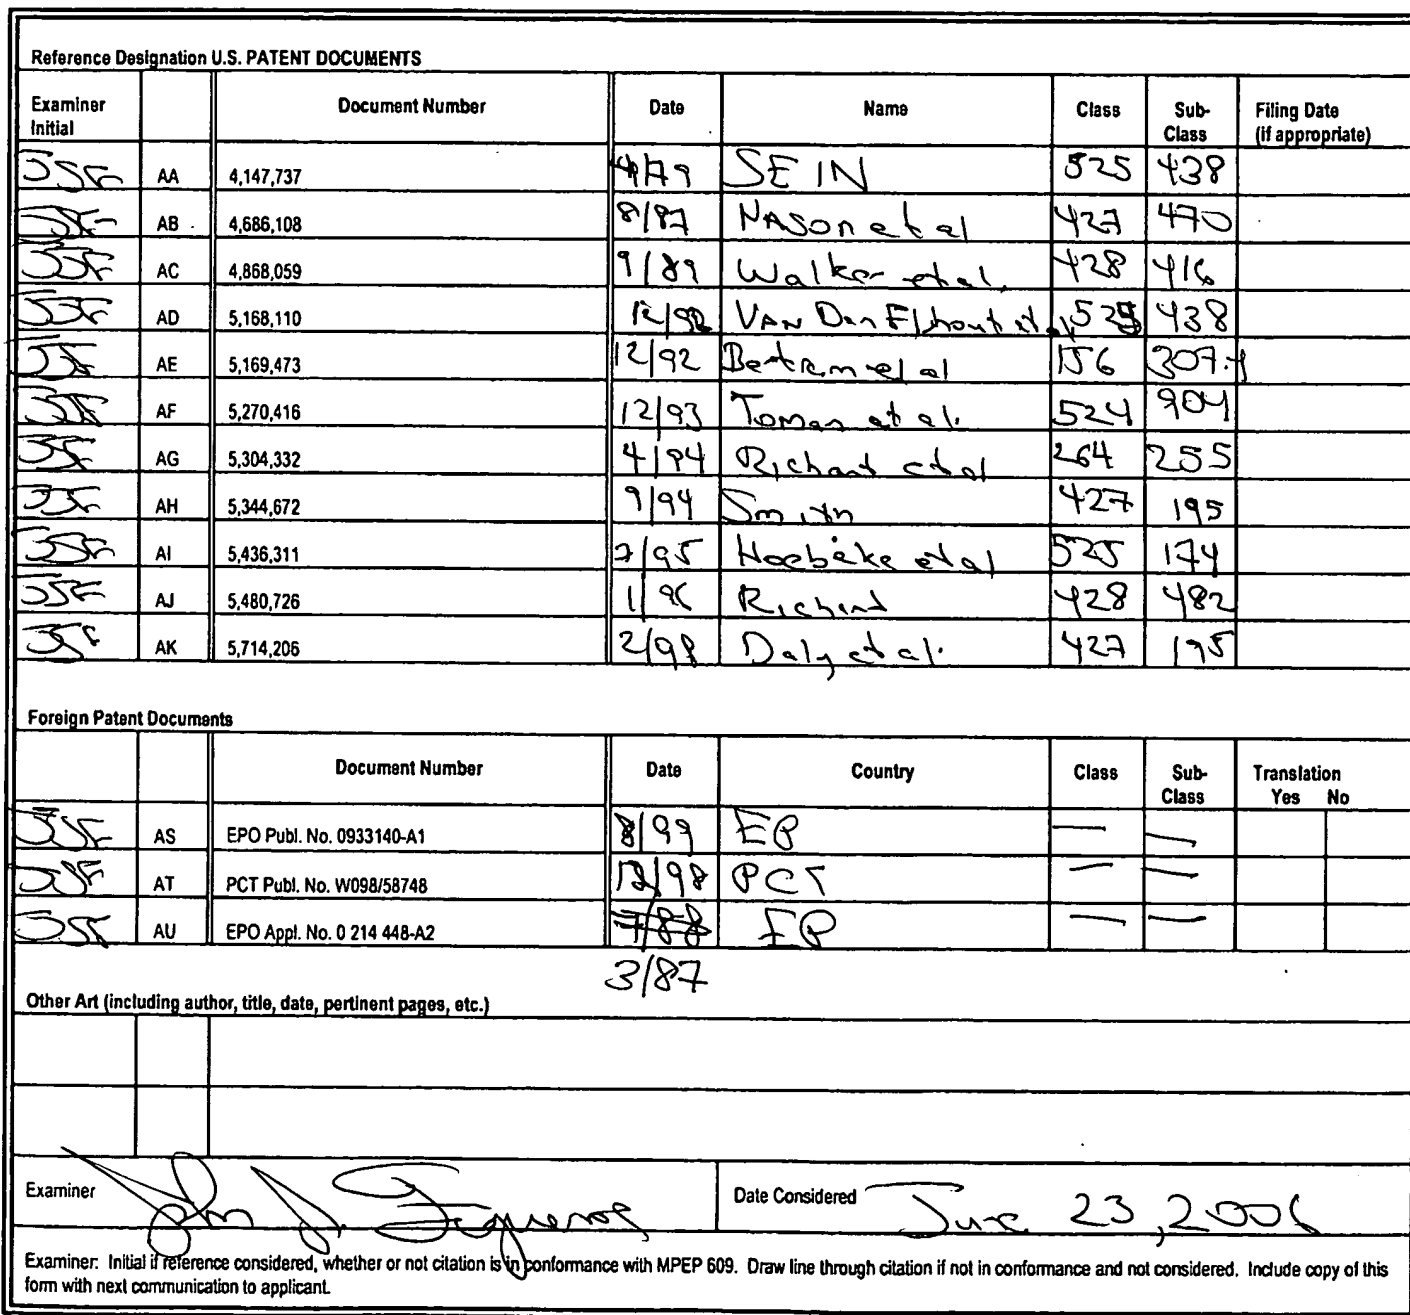 Reference Designation U.S. PATENT DOCUMENTS
Examiner Initial Document Number Date Name Class Sub-Class Filing Date (if appropriate)
JSF AA 4,147,737 4/79 SEIN 525 438
JSF AB 4,686,108 8/87 NASON et al 427 470
JSF AC 4,868,059 9/89 Walker et al. 428 416
JSF AD 5,168,110 12/92 VAN Den Elshout et al 525 438
JSF AE 5,169,473 12/92 Bertram et al 156 307.4
JSF AF 5,270,416 12/93 Toman et al. 524 904
JSF AG 5,304,332 4/94 Richart et al 264 255
JSF AH 5,344,672 9/94 Smith 427 195
JSF AI 5,436,311 7/95 Hoebeke et al 525 174
JSF AJ 5,480,726 1/96 Richart 428 482
JSF AK 5,714,206 2/98 Daly et al. 427 195
Foreign Patent Documents
Document Number Date Country Class Sub-Class Translation Yes No
JSF AS EPO Publ. No. 0933140-A1 8/99 EP — —
JSF AT PCT Publ. No. W098/58748 12/98 PCT — —
JSF AU EPO Appl. No. 0 214 448-A2 EP — —
3/87
Other Art (including author, title, date, pertinent pages, etc.)
Examiner John J. Figueroa Date Considered June 23, 2006
Examiner: Initial if reference considered, whether or not citation is in conformance with MPEP 609. Draw line through citation if not in conformance and not considered. Include copy of this
form with next communication to applicant.